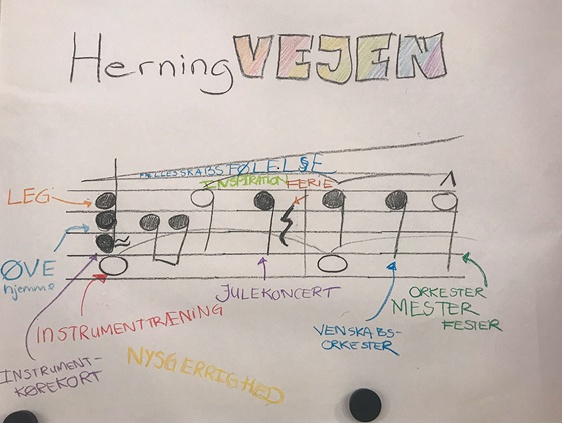 HerningVEJEN
FÆLLESSKABSFØLELSE
INSPIRATION FERIE
LEG
ØVE
hjemme
JULEKONCERT
ORKESTER
MESTER
FESTER
INSTRUMENTTRÆNING
VENSKABS-
ORKESTER
INSTRUMENT-
KØREKORT
NYSGERRIGHED